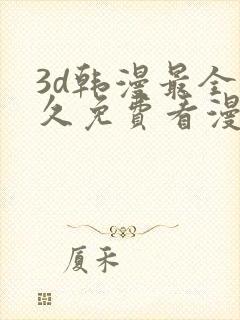 3d韩漫最全
久免費看漫
厦禾